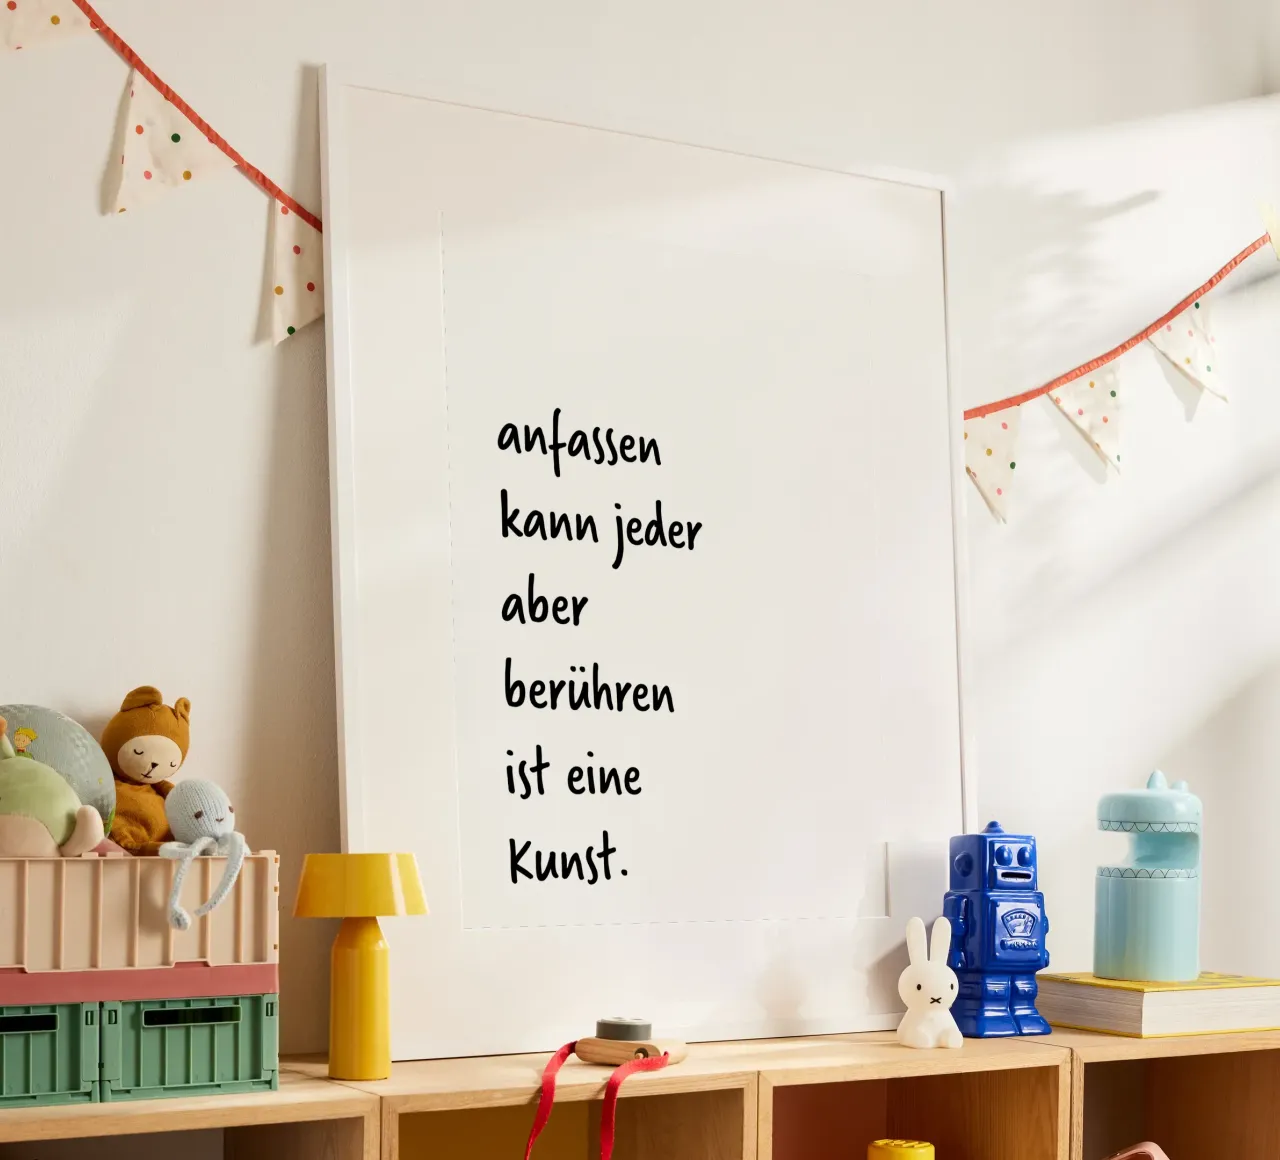 anfassen
kann jeder
aber
berühren
ist eine
Kunst.